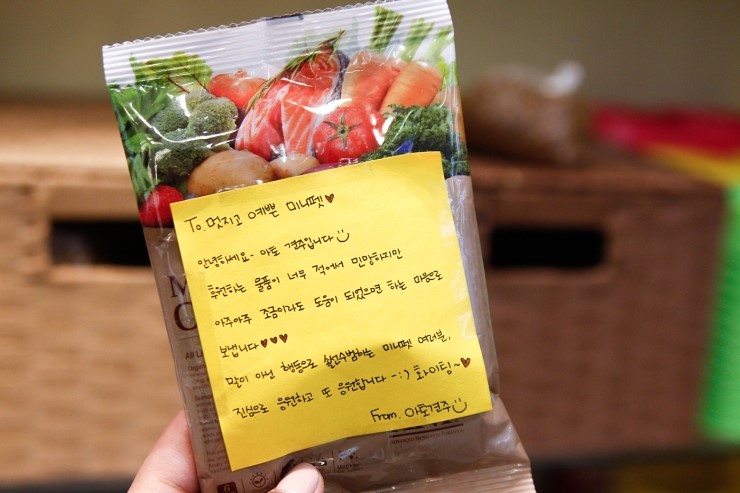 To. 멋지고 예쁜 미니펫♥
안녕하세요~ 아토 견주입니다
후원하는 물품이 너무 적어서 민망하지만
아주아주 조금이라도 도움이 되었으면 하는 마음으로
보냅니다♥♥♥
말이 아닌 행동으로 솔선수범하는 미니펫 여러분,
진심으로 응원하고 또 응원합니다 ~:) 화이팅~♥
from. 아토견주